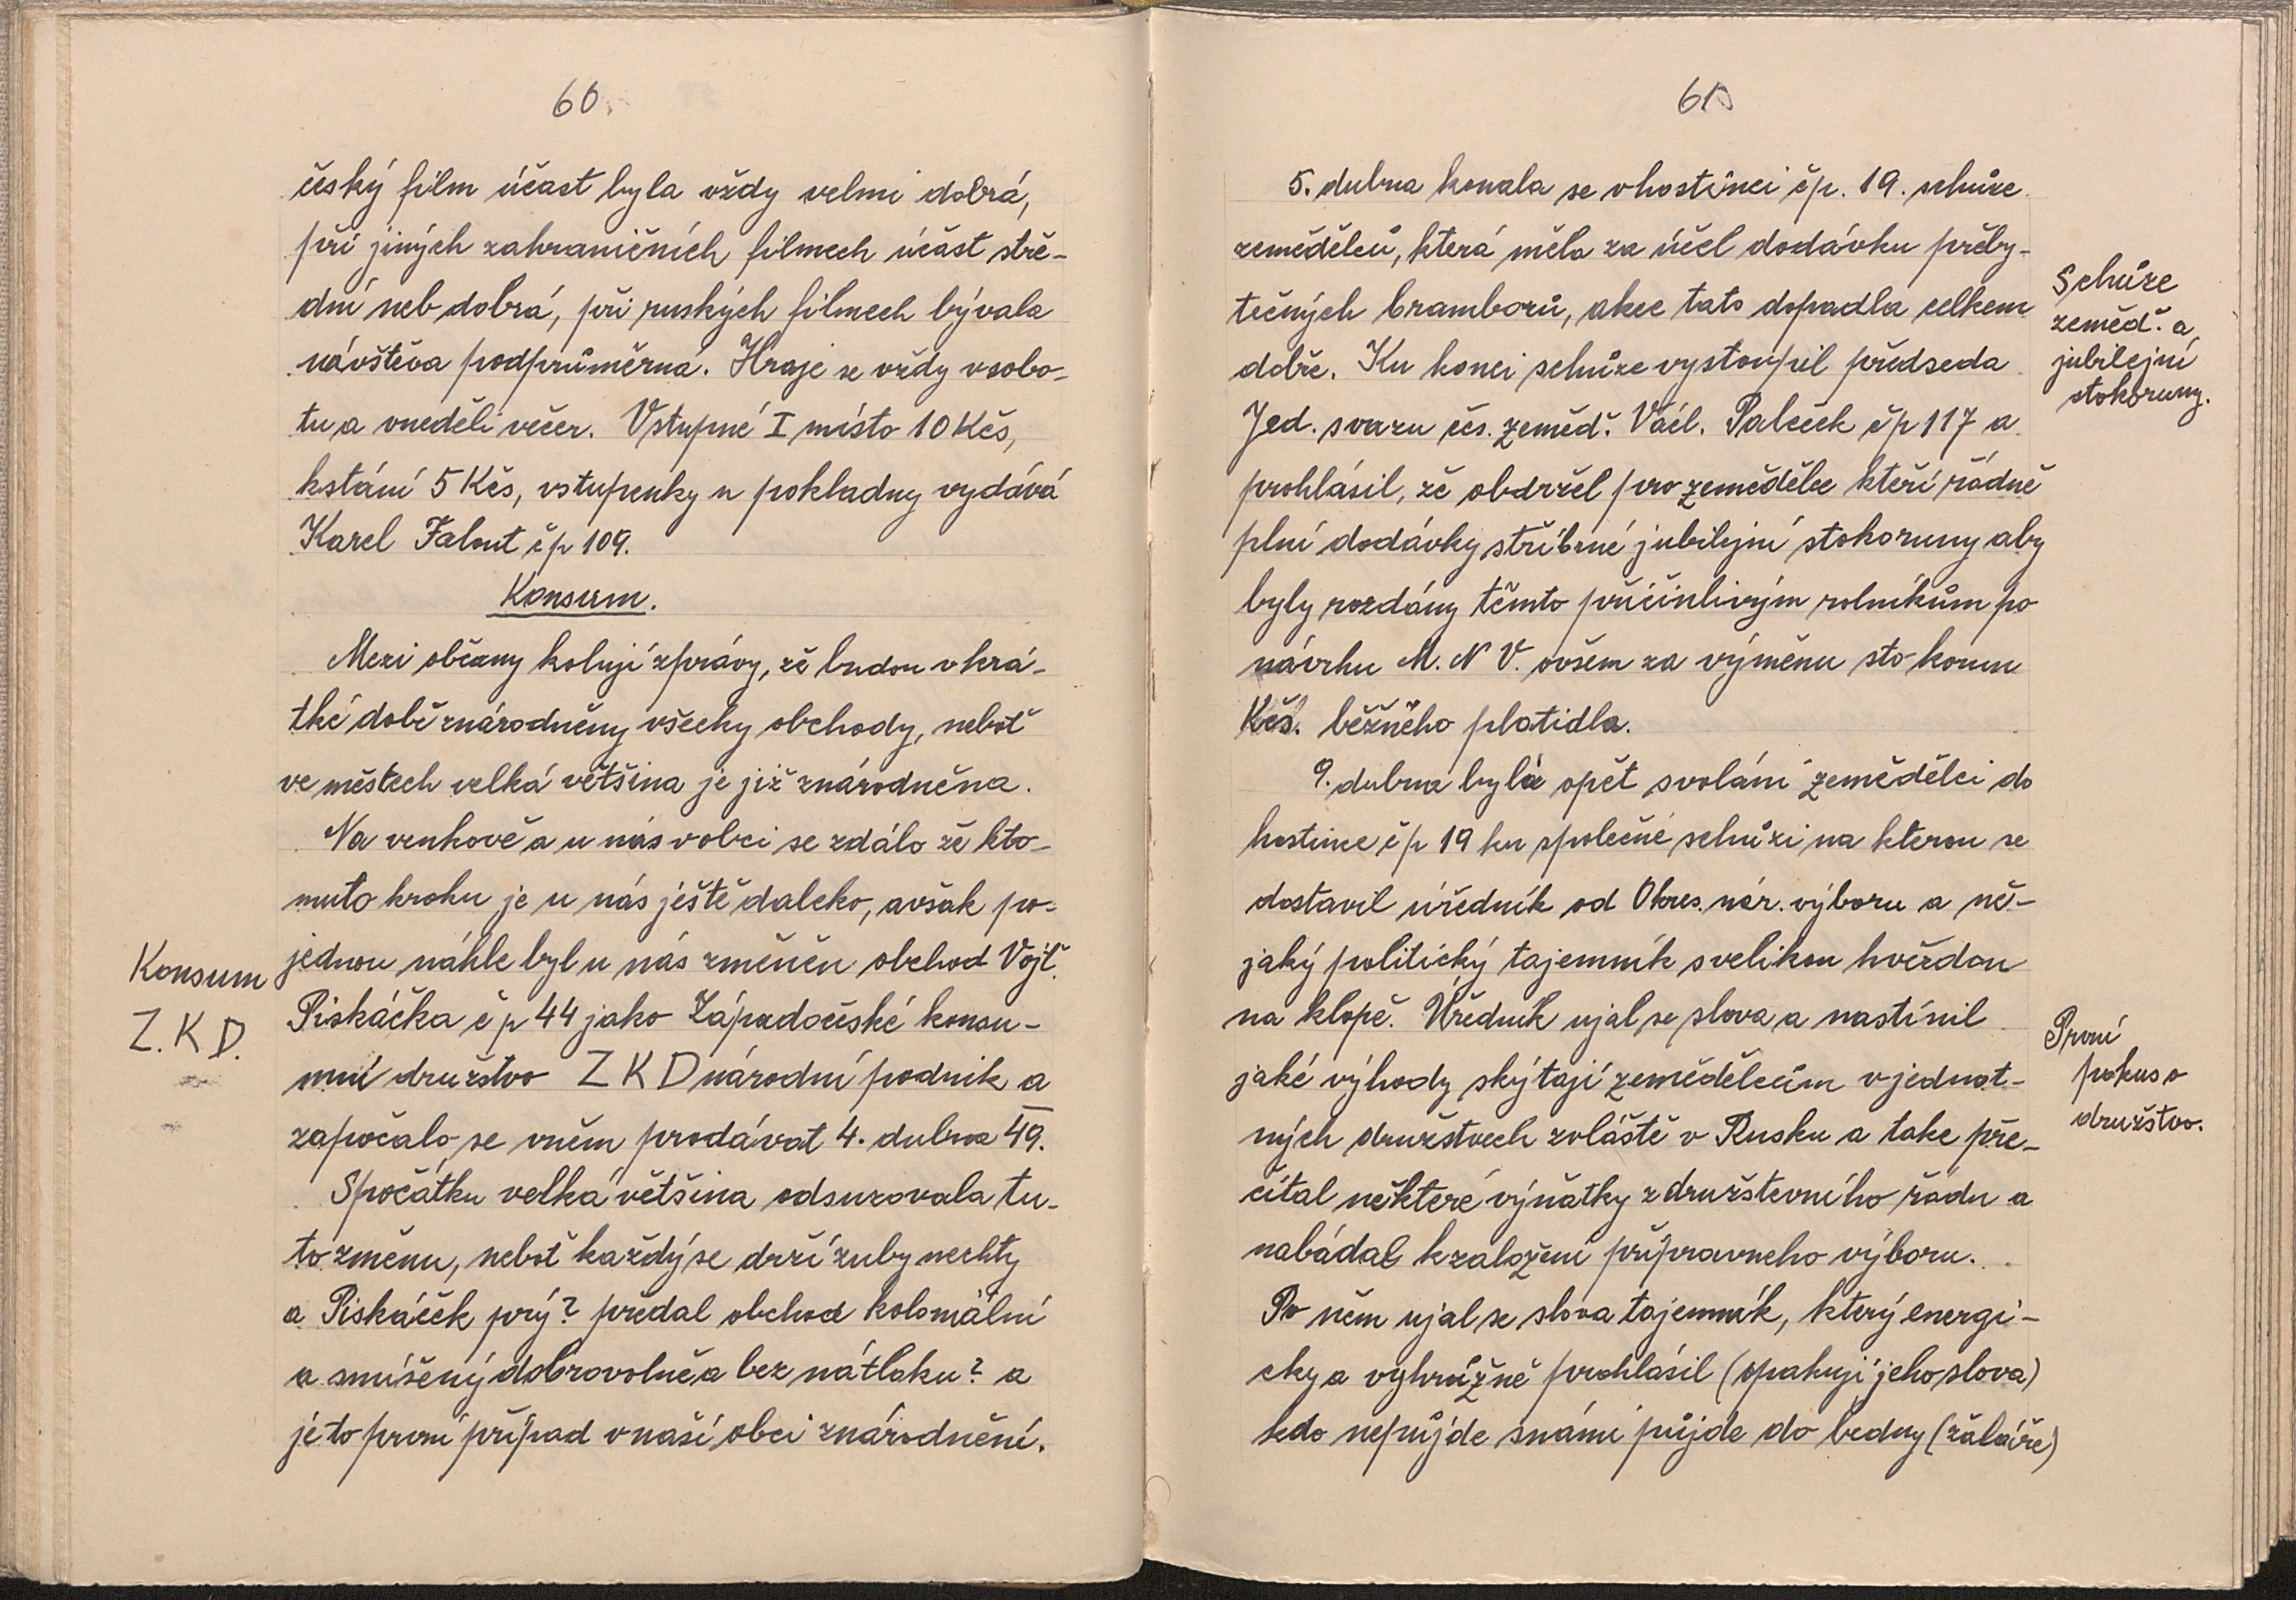 60.
český film účast byla vždy velmi dobrá,
při jiných zahraničních filmech účást stře-
dní neb dobrá, při ruských filmech bývala
návštěva podprůměrná. Hraje se vždy v sobo-
tu a v neděli večer. Vstupné I místo 10 Kčs,
k stání 5 Kčs, vstupenky u pokladny vydává
Karel Falout čp 109.
Konsum.
Mezi občany kolují zprávy, že budou v krá-
tké době znárodněny všecky obchody, neboť
ve městech velká většina je již znárodněna.
Na venkově a u nás v obci se zdálo že k to-
muto kroku je u nás ještě daleko, avšak po-
jednou náhle byl u nás změněn obchod Vojť.
Konsum
Z.K.D.
Piskáčka čp 44 jako Západočeské konsu-
mní družstvo Z K D národní podnik a
započalo se v něm prodávat 4. dubna 49.
Spočátku velká většina odsuzovala tu-
to změnu, neboť každý se drží zuby nechty
a Piskáček prý? předal obchod koloniální
a smíšený dobrovolně a bez nátlaku? a
je to první případ v naší obci znárodnění.
61.
5. dubna konala se v hostinci čp. 19. schůze
zemědělců, která měla za účel dodávku přeby-
tečných bramborů, akce tato dopadla celkem
dobře. Ku konci schůze vystoupil předseda
Schůze
zeměď. a
jubilejní
stokoruny.
Jed. svazu čes. zeměď. Václ. Paleček čp 117 a
prohlásil, že obdržel pro zemědělce kteří řádně
plní dodávky stříbrné jubilejní stokoruny aby
byly rozdány těmto přičinlivým rolníkům po
návrhu M. N V. ovšem za výměnu sto korun
Kčs. běžného platidla.
9. dubna byla opět svoláni zemědělci do
hostince čp 19 ku společné schůzi na kterou se
dostavil úředník od Okres. nár. výboru a ně-
jaký politický tajemník s velikou hvězdou
na klopě. Úředník ujal se slova a nastínil
První
pokus o
družstvo.
jaké výhody skýtají zemědělcům v jednot-
ných družstvech zvláště v Rusku a take pře-
čítal některé výňatky z družstevního řádu a
nabádal k založení připravneho výboru.
Po něm ujal se slova tajemník, který energi-
cky a výhrůžně prohlásil (opakuji jeho slova)
kdo nepůjde s námi půjde do bedny (žaláře)